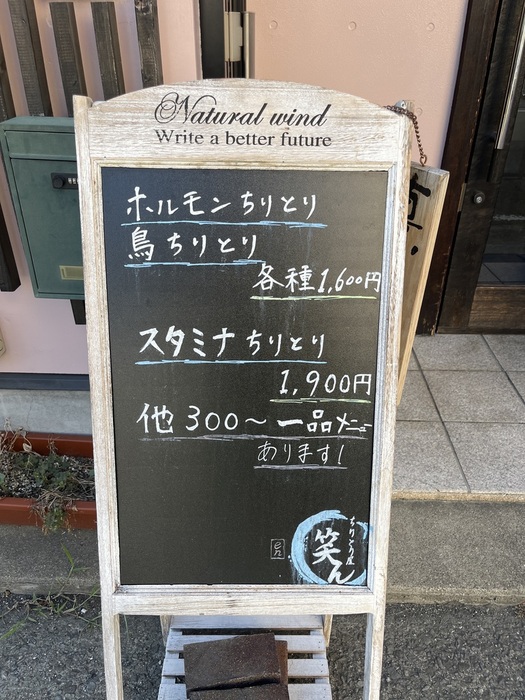 Natural wind
Write a better future
ホルモンちりとり
鳥ちりとり
各種1,600円
スタミナちりとり
1,900円
他300〜一品メニュー
あります!
ちりとり屋
笑ん
en